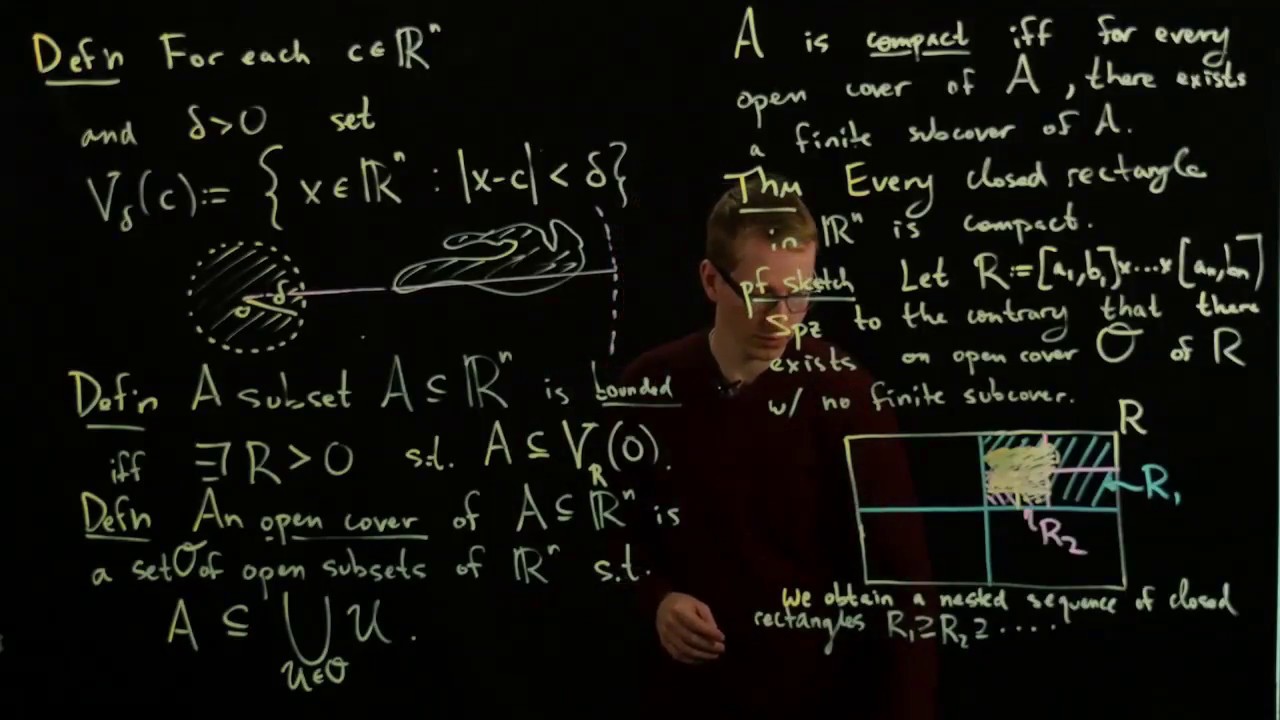 Defn For each c∈ℝⁿ
and δ>0 set
V_δ(c):= { x∈ℝⁿ : |x-c| < δ}
δ
0
Defn A subset A⊆ℝⁿ is bounded
iff ∃R>0 s.t. A⊆V_R(0).
Defn An open cover of A⊆ℝⁿ is
a set 𝒪 of open subsets of ℝⁿ s.t.
A ⊆ ⋃_{U∈𝒪} U.
A is compact iff for every
open cover of A, there exists
a finite subcover of A.
Thm Every closed rectangle
in ℝⁿ is compact.
pf sketch Let R:=[a₁,b₁]×...×[aₙ,bₙ]
Spz to the contrary that there
exists an open cover 𝒪 of R
w/ no finite subcover.
R
R₁
R₂
We obtain a nested sequence of closed
rectangles R₁⊇R₂⊇....